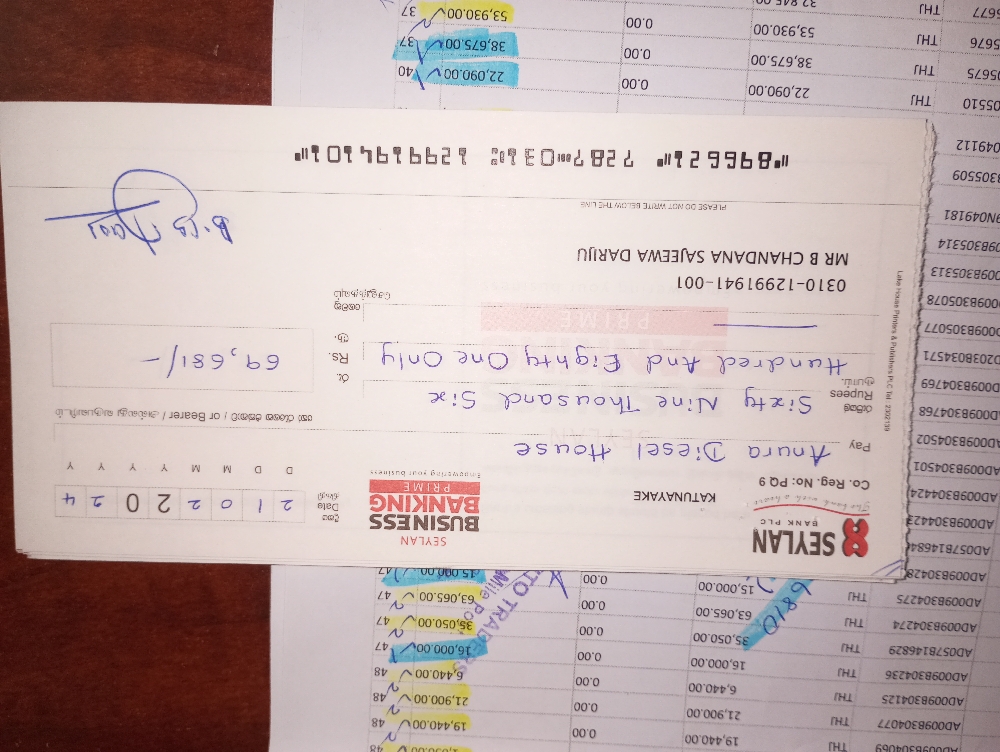 AD009B304069 THJ 19,440.00 0.00 19,440.00 48
AD009B304077 THJ 21,900.00 0.00 21,900.00 48
AD009B304125 THJ 6,440.00 0.00 6,440.00 48
AD009B304236 THJ 16,000.00 0.00 16,000.00 47
AD057B146829 THJ 35,050.00 0.00 35,050.00 47
AD009B304274 THJ 63,065.00 0.00 63,065.00 47
AD009B304275 THJ 15,000.00 0.00 15,000.00 47
6810
TO TRADERS
Mile Po
SEYLAN
BANK PLC
The bank with a heart
Co. Reg. No: PQ 9
KATUNAYAKE
SEYLAN
BUSINESS
BANKING
PRIME
Empowering your business
දිනය
Date
திகதி
2 1 0 2 2 0 2 4
D D M M Y Y Y Y
Pay Anura Diesel House
or Bearer
රුපියල්
Rupees
ரூபாய்
Sixty Nine Thousand Six
Hundred And Eighty One Only
රු.
Rs.
ரூ.
69,681/-
0310-12991941-001
MR B CHANDANA SAJEEWA DARIJU
PLEASE DO NOT WRITE BELOW THE LINE
Lake House Printers & Publishers PLC
896621 7287 031 1299194101
AD009B304501
AD009B304502
AD009B304768
AD009B304769
AD203B034571
D009B305077
009B305078
09B305313
09B305314
9N049181
B305509
049112
05510 THJ 22,090.00 0.00 22,090.00 40
05675 THJ 38,675.00 0.00 38,675.00 37
05676 THJ 53,930.00 0.00 53,930.00 37
05677 THJ